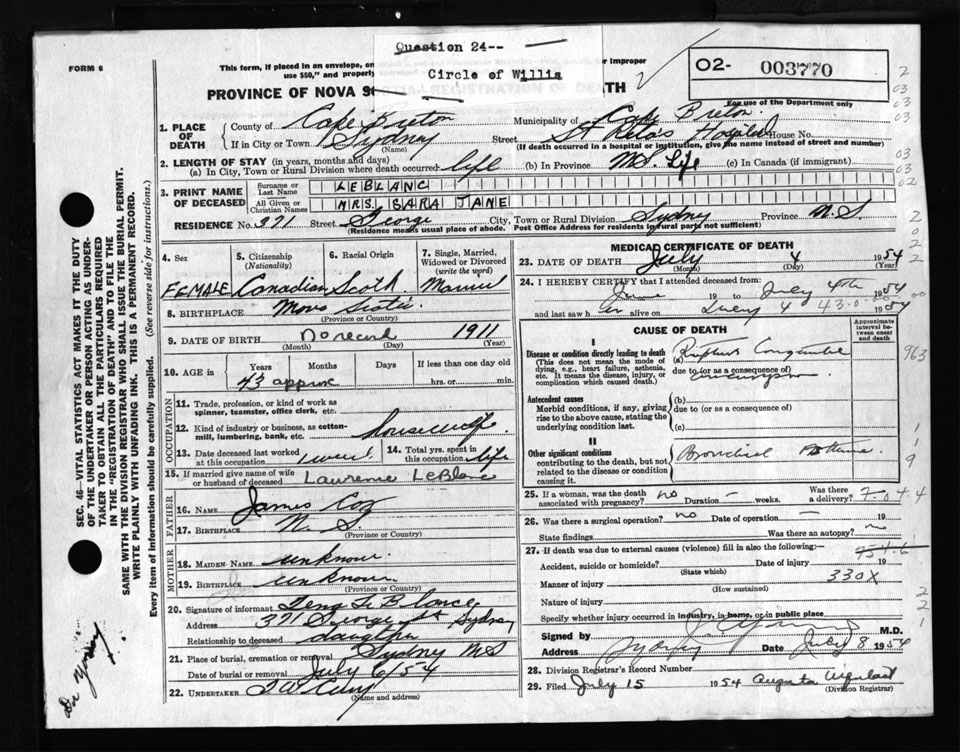 Question 24--
Circle of Willis
FORM 6
This form, if placed in an envelope, on
use $50," and property
improper
PROVINCE OF NOVA S
TH
O2- 003770
For use of the Department only
1. PLACE OF DEATH
County of Cape Breton
Municipality of Cape Breton
If in City or Town Sydney
(Name)
Street St Rita's Hospital House No.
(If death occurred in a hospital or institution, give the name instead of street and number)
2. LENGTH OF STAY (in years, months and days)
(a) In City, Town or Rural Division where death occurred life (b) In Province N.S. Life (c) In Canada (if immigrant)
3. PRINT NAME OF DECEASED
Surname or Last Name LEBLANC
All Given or Christian Names MRS. SARA JANE
RESIDENCE No. 371 Street George City, Town or Rural Division Sydney Province N.S.
(Residence means usual place of abode. Post Office Address for residents in rural parts not sufficient)
4. Sex
FEMALE
5. Citizenship (Nationality)
Canadian
6. Racial Origin
Scotch
7. Single, Married, Widowed or Divorced (write the word)
Married
8. BIRTHPLACE Nova Scotia
(Province or Country)
9. DATE OF BIRTH No record 1911
(Month) (Day) (Year)
10. AGE in
Years Months Days If less than one day old
43 approx hrs. or min.
OCCUPATION
11. Trade, profession, or kind of work as spinner, teamster, office clerk, etc.
12. Kind of industry or business, as cotton-mill, lumbering, bank, etc. housewife
13. Date deceased last worked at this occupation 1 week
14. Total yrs. spent in this occupation life
15. If married give name of wife or husband of deceased Laurence LeBlanc
FATHER
16. Name James Coz
17. Birthplace N. S.
(Province or Country)
MOTHER
18. Maiden Name unknown
19. Birthplace unknown
(Province or Country)
20. Signature of informant Lena LeBlanc
Address 371 George St Sydney
Relationship to deceased daughter
21. Place of burial, cremation or removal Sydney NS
Date of burial or removal July 6/54
22. Undertaker
(Name and address)
MEDICAL CERTIFICATE OF DEATH
23. DATE OF DEATH July 4 1954
(Month) (Day) (Year)
24. I HEREBY CERTIFY that I attended deceased from
June 19 to July 4th 1954
and last saw her alive on July 4 1954
CAUSE OF DEATH
Approximate interval between onset and death
I
Disease or condition directly leading to death
(This does not mean the mode of dying, e.g., heart failure, asthenia, etc. It means the disease, injury, or complication which caused death.)
(a) Ruptured Congenital
due to (or as a consequence of)
aneurysm
Antecedent causes
Morbid conditions, if any, giving rise to the above cause, stating the underlying condition last.
(b)
due to (or as a consequence of)
(c)
II
Other significant conditions
contributing to the death, but not related to the disease or condition causing it.
Bronchial Asthma
25. If a woman, was the death associated with pregnancy? no Duration – weeks. Was there a delivery?
26. Was there a surgical operation? no Date of operation – 19
State findings Was there an autopsy? no
27. If death was due to external causes (violence) fill in also the following:—
754.6
Accident, suicide or homicide? Date of injury 19
(State which)
330X
Manner of injury
(How sustained)
Nature of injury
Specify whether injury occurred in industry, in home, or in public place
Signed by M.D.
Address Sydney Date July 8 1954
28. Division Registrar's Record Number
29. Filed July 15 1954 Augusta
(Division Registrar)
963
SEC. 46—VITAL STATISTICS ACT MAKES IT THE DUTY
OF THE UNDERTAKER OR PERSON ACTING AS UNDER-
TAKER TO OBTAIN ALL THE PARTICULARS REQUIRED
IN THE "REGISTRATION OF DEATH" AND TO FILE THE
SAME WITH THE DIVISION REGISTRAR WHO SHALL ISSUE THE BURIAL PERMIT.
WRITE PLAINLY WITH UNFADING INK. THIS IS A PERMANENT RECORD.
Every item of information should be carefully supplied. (See reverse side for instructions.)
Dr Young